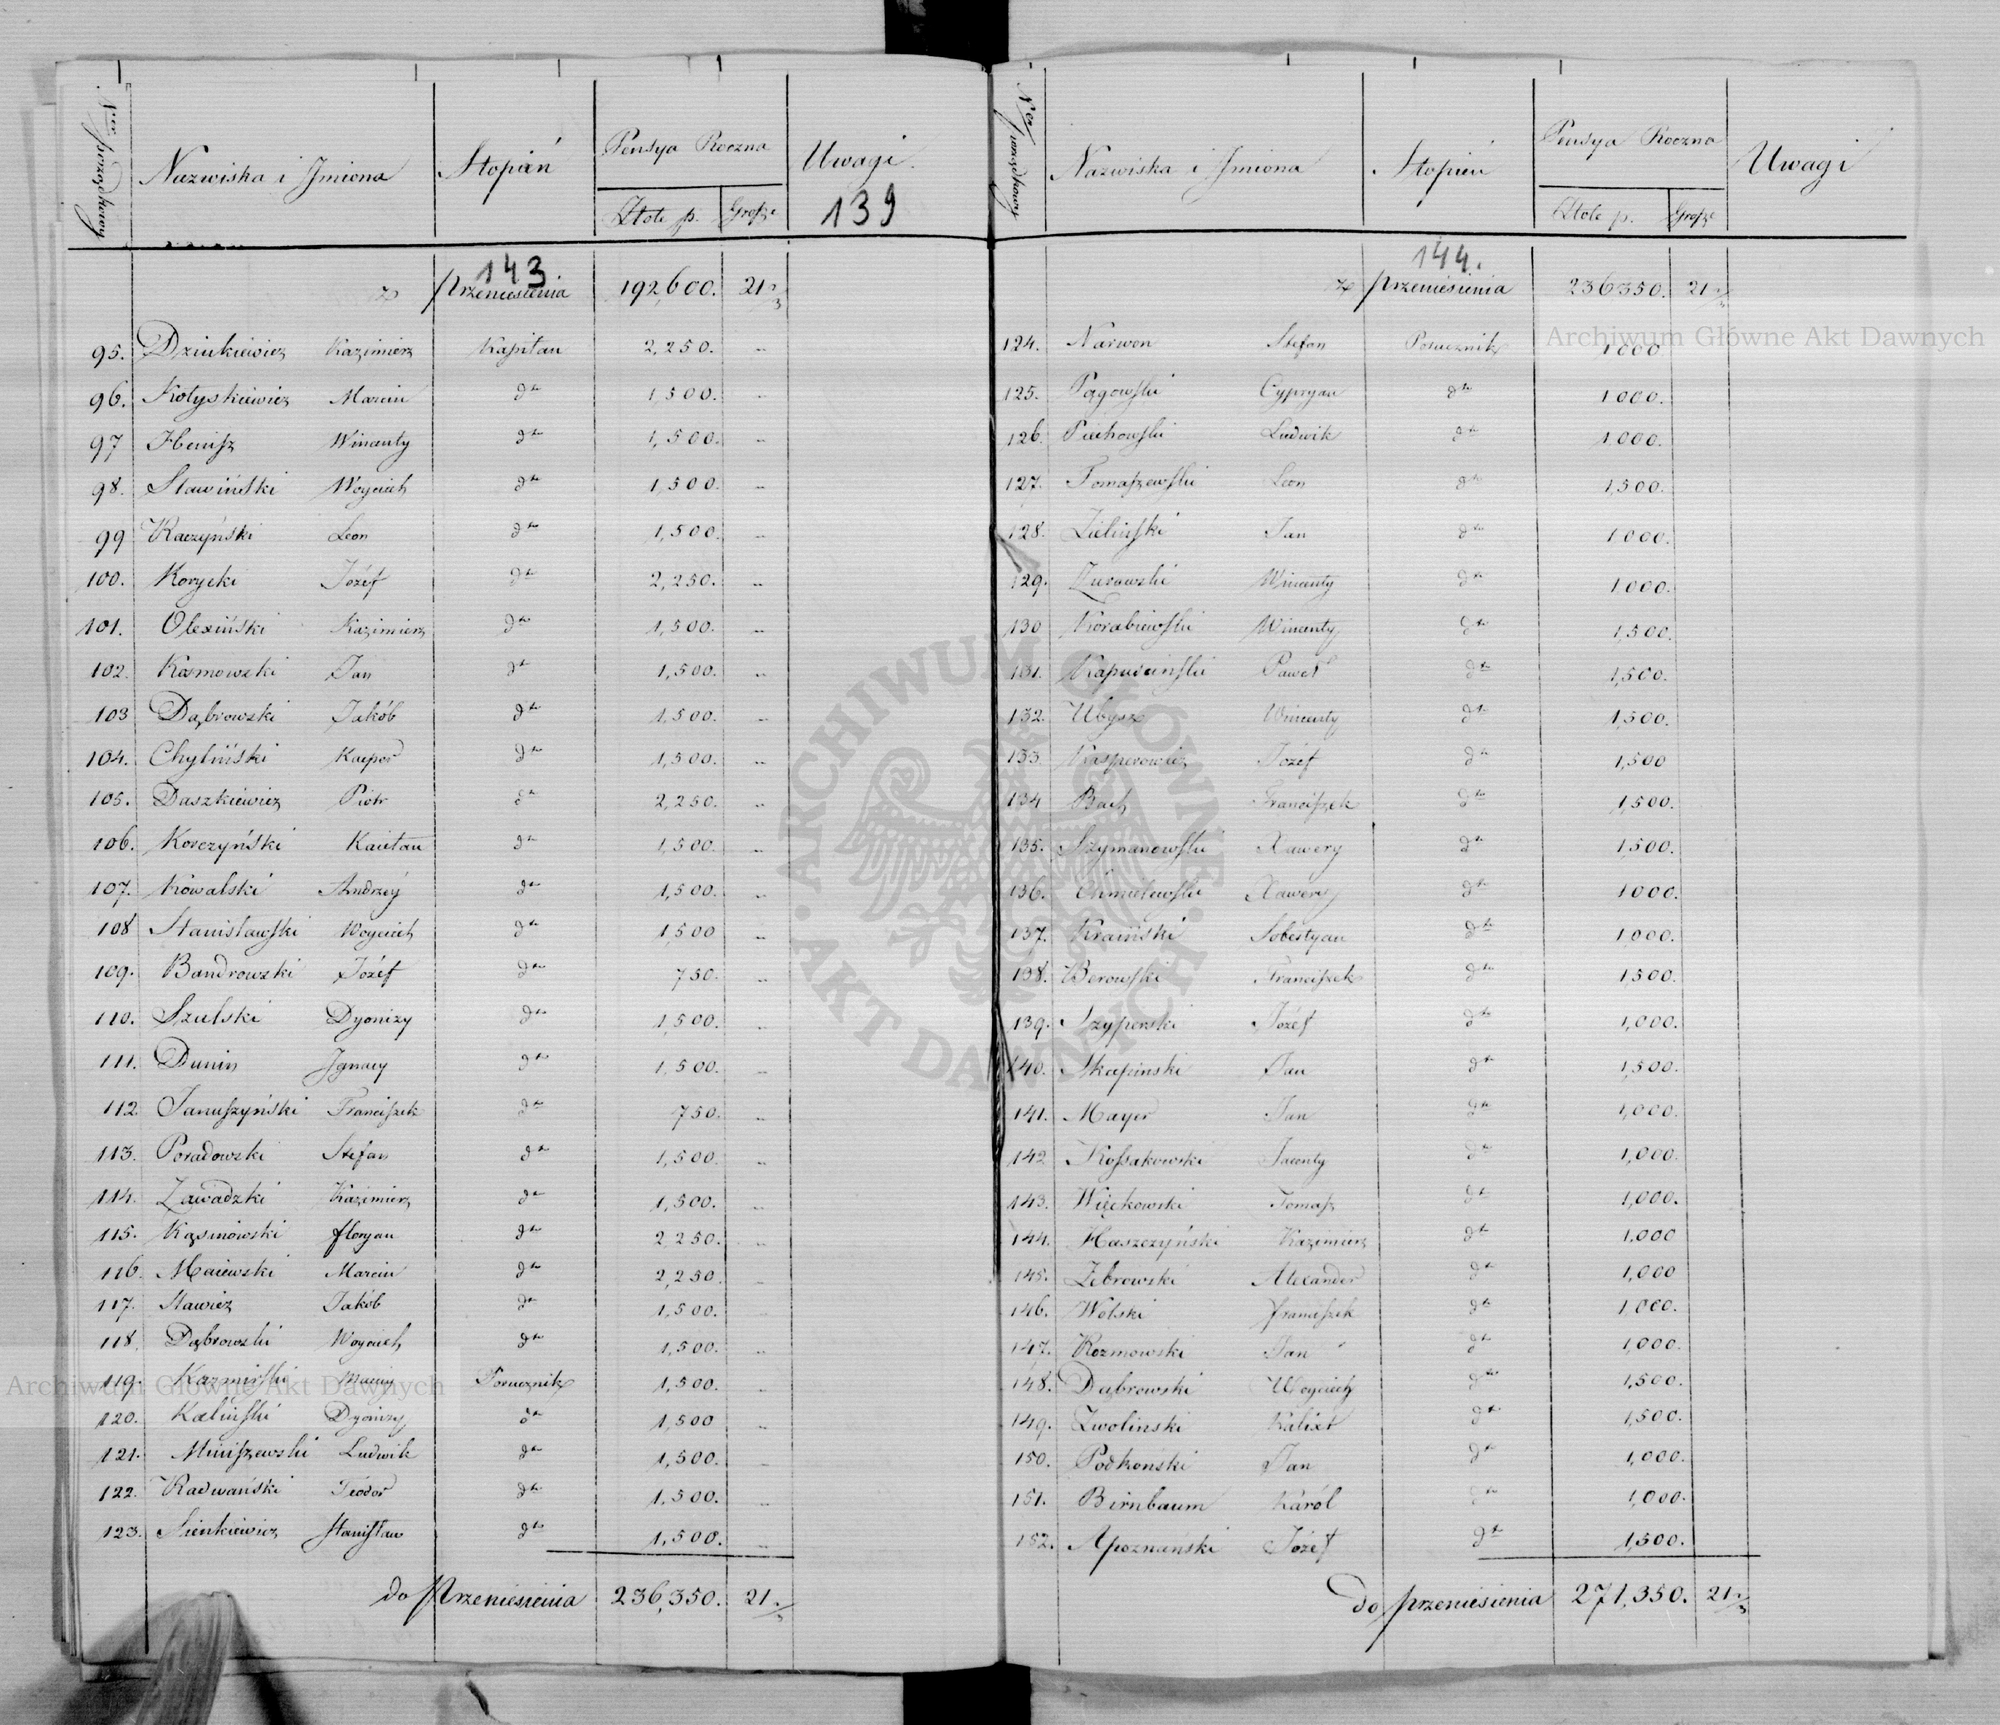 Nro porządkowy
Nazwiska i Jmiona Stopień Pensya Roczna Uwagi
Złote p. Grosze 139
143
z przeniesienia 192,600. 21
95. Dziekiewicz Kazimierz Kapitan 2,250. ..
96. Kotyskiewicz Marcin dto 1,500. ..
97 Henisz Wincenty dto 1,500. ..
98. Sławiński Woyciech dto 1,500. ..
99 Kaczyński Leon dto 1,500. ..
100. Korycki Józef dto 2,250. ..
101. Olexiński Kazimierz dto 1,500. ..
102. Kosmowski Jan dto 1,500. ..
103 Dąbrowski Jakób dto 1,500. ..
104. Chyliński Kacper dto 1,500. ..
105. Daszkiewicz Piotr dto 2,250. ..
106. Korczyński Kaietan dto 1,500. ..
107. Kowalski Andrzéy dto 1,500. ..
108 Stanisławski Woyciech dto 1,500 ..
109. Bandrowski Józéf dto 750. ..
110. Szulski Dyonizy dto 1,500. ..
111. Dunin Jgnacy dto 1,500. ..
112 Januszyński Franciszek dto 750. ..
113. Poradowski Stefan dto 1,500. ..
114. Zawadzki Kazimierz dto 1,500. ..
115. Kąsinowski floryan dto 2250. ..
116. Maiewski Marcin dto 2,250. ..
117. Sławicz Jakób dto 1,500. ..
118. Dąbrowski Woyciech dto 1,500. ..
119. Kazmirski Maciey Porucznik 1,500. ..
120. Kaliński Dyonizy dto 1,500 ..
121. Miniszewski Ludwik dto 1,500. ..
122. Radwański Teodor dto 1,500. ..
123. Sienkiewicz Stanisław dto 1,500. ..
do przeniesienia 236,350. 21
Nro porządkowy
Nazwiska i Jmiona Stopień Pensya Roczna Uwagi
Złote p. Grosze
144.
z przeniesienia 236350. 21
124. Narwon Stefan Porucznik 1000
125. Pągowski Cypryan dto 1000.
126. Piechowski Ludwik dto 1.000.
127. Tomaszewski Leon dto 1,500.
128. Zieliński Jan dto 1000.
129. Żurawski Wincenty dto 1,000.
130 Korabiewski Wincenty dto 1,500.
131. Kapuścinski Paweł dto 1,500.
132. Ubysz Wincenty dto 1,500.
133. Kasperowicz Józéf dto 1,500
134 Bach Franciszek dto 1,500.
135. Szymanowski Xawery dto 1,500.
136. Chmielewski Xawery dto 1000.
137. Kraiński Sobestyan dto 1,000.
138. Berowski Franciszek dto 1,500.
139. Szyperski Józéf dto 1,000.
140. Skapinski Jan dto 1,500.
141. Mayer Jan dto 1,000.
142 Kossakowski Jacenty dto 1,000.
143. Więckowski Tomasz dto 1,000.
144. Haszczyński Kazimierz dto 1,000
145. Zebrowski Alexander dto 1,000
146. Wolski franciszek dto 1,000.
147. Kozmowski Jan dto 1,000.
148. Dąbrowski Woyciech dto 1,500.
149. Zwolinski Kalixt dto 1,500.
150. Podkoński Jan dto 1,000.
151. Birnbaum Karól dto 1,000.
152. Apoznański Józéf dto 1,500.
do przeniesienia 271,350. 21
Archiwum Główne Akt Dawnych
Archiwum Główne Akt Dawnych
ARCHIWUM GŁÓWNE · AKT DAWNYCH ·